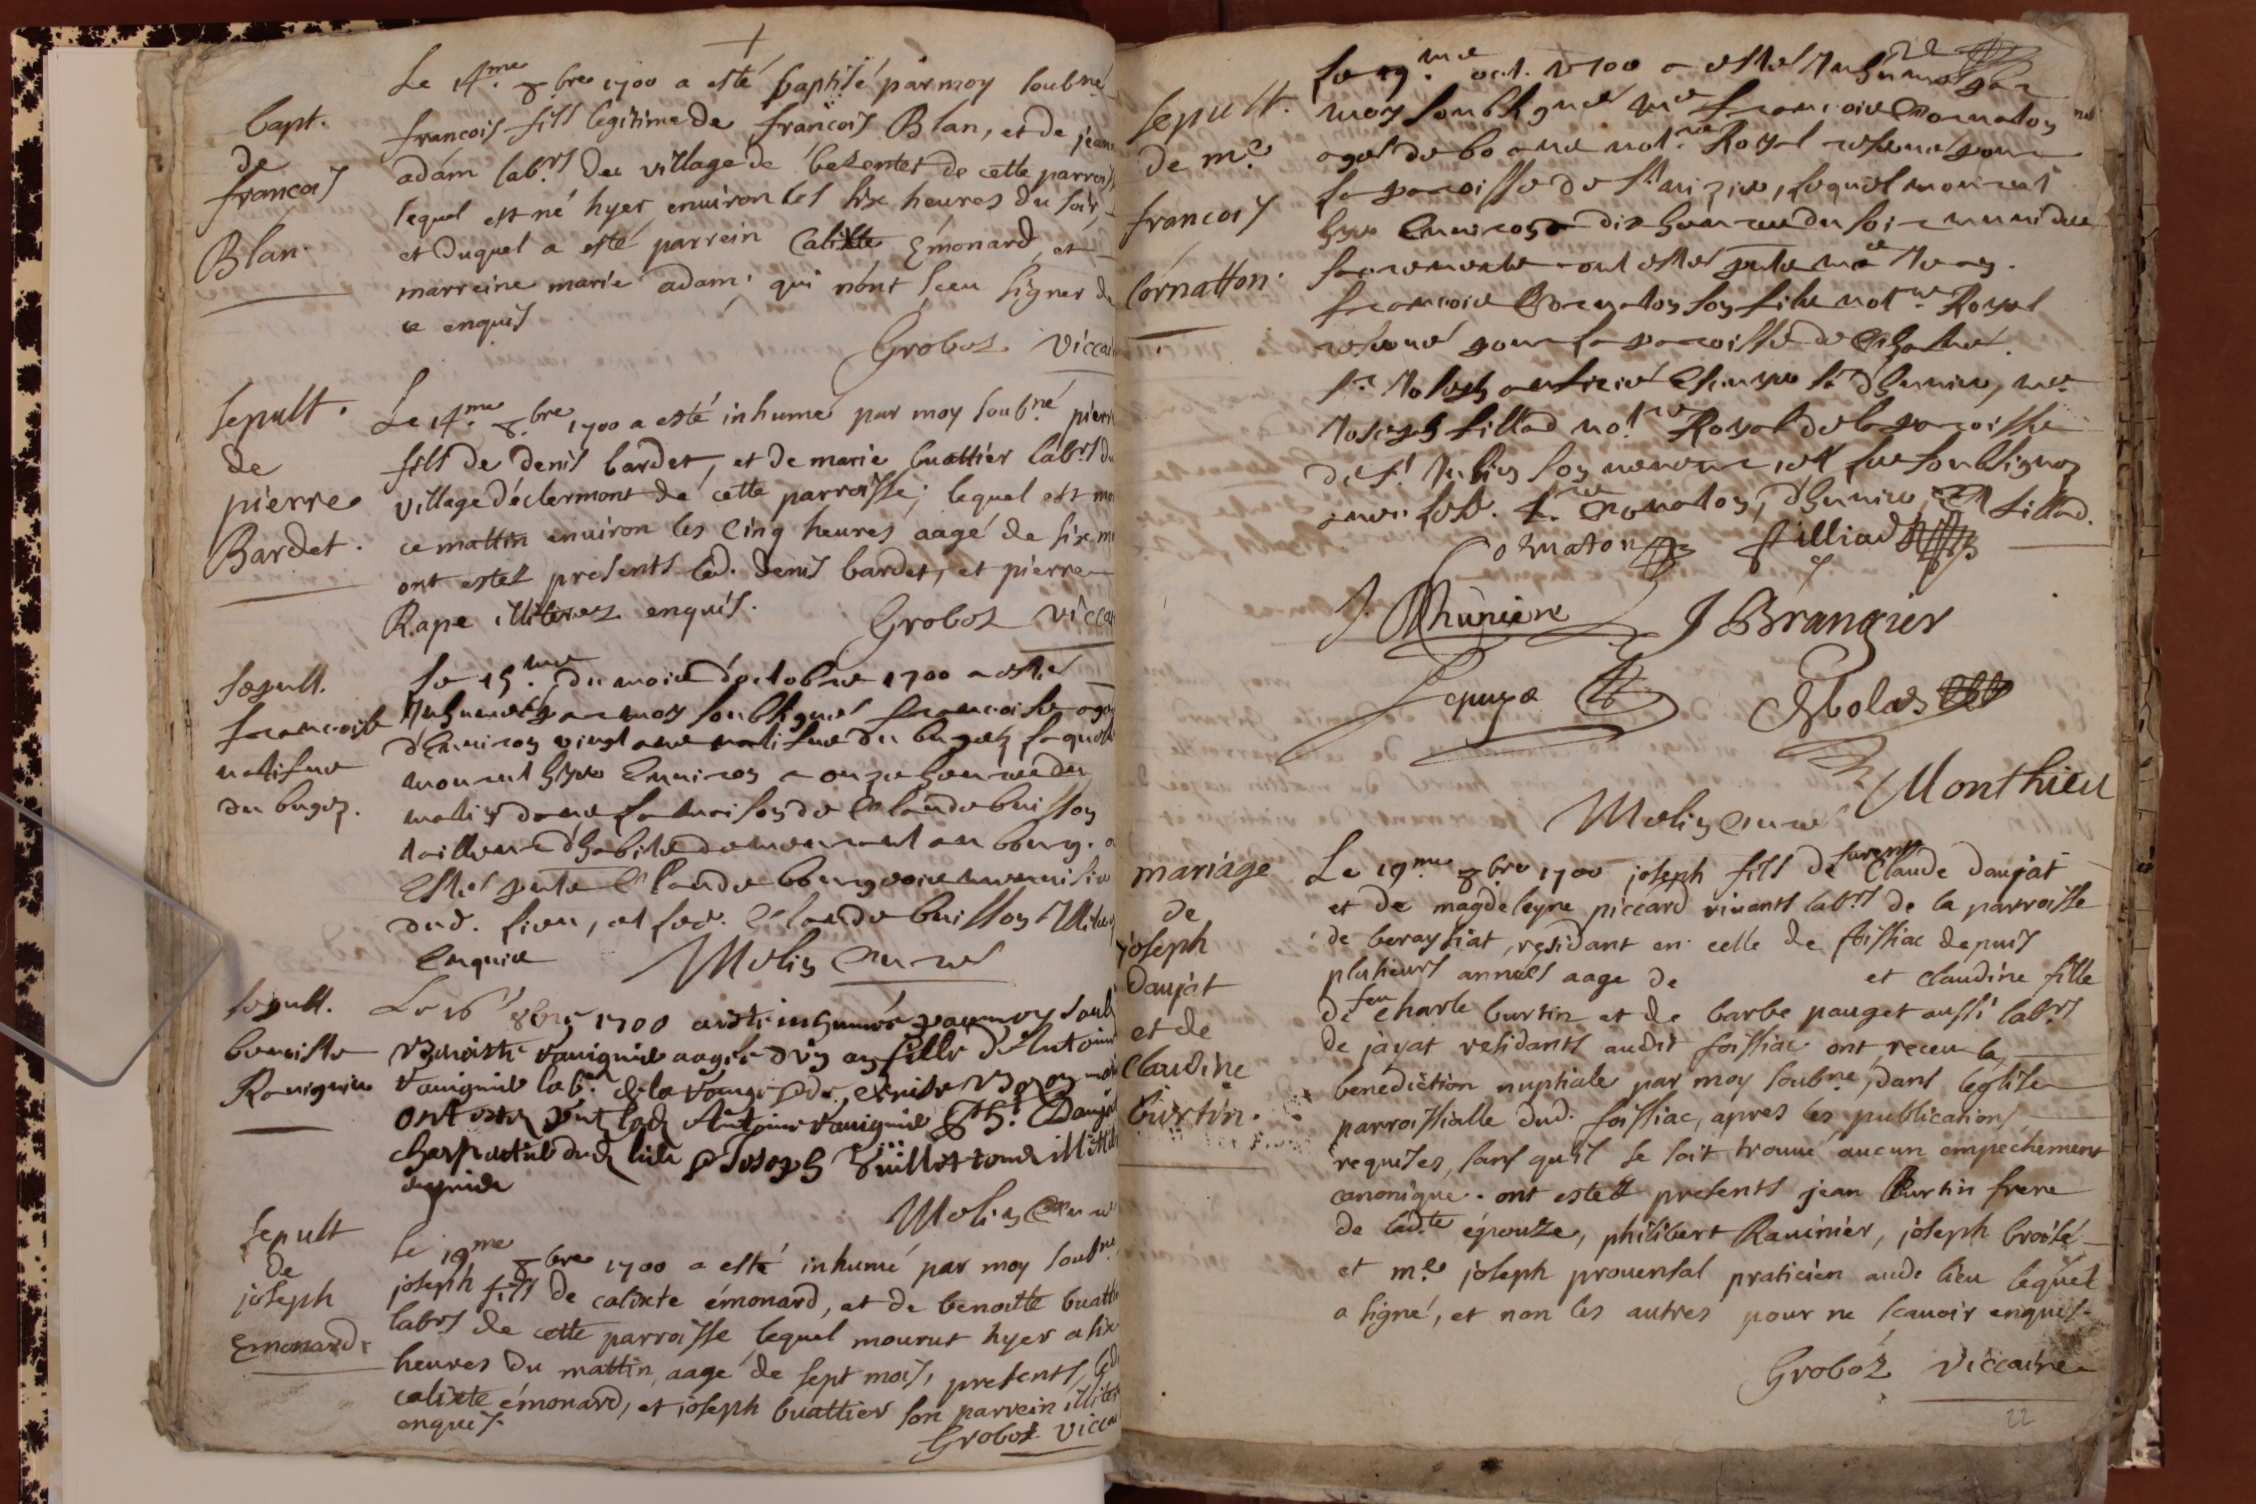 Bapt.
de
francois
Blan.
Le 14.me 8.bre 1700 a esté baptisé par moy soub.né
francois fils legitime de francois Blan, et de jean
adam lab.rs du village de bezentet de cette parroiss
lequel est né hyer environ les six heures du soir,
et duquel a esté parrein Calixte Emonard, et
marreine marie adam. qui n'ont sceu signer de
ce enquis
Groboz viccai
sepult.
de
pierre
Bardet.
Le 14.me 8.bre 1700 a esté inhumé par moy soub.né pierr
fils de denis bardet, et de marie buattier lab.rs du
village d'éclermont de cette parroisse; lequel est mo
ce mattin environ les Cinq heures aagé de six m
ont estez presents led. denis bardet, et pierre
Rape illiterez enquis.
Groboz vicca
sepult.
francoise
natifve
du bugez.
Le 15.me du mois d'octobre 1700 a esté
Inhumée par moy soubsigné francoise agee
d'Environ vingt ans natifve du bugez laquelle
mourut hyer Environ a onze heures du
matin dans la maison de Claude buisson
tailleur d'habits demeurant au bourg. a
Estes pnts Claude bourgeois
dud. lieu, et led. Claude buisson Illiter
Enquis
Molin Cure
sepult.
benoiste
Rauignier
Le 16 8bre 1700 a esté inhumée par moy soub
Benoiste Rauignier aagée d'un an fille d'Antoine
Rauignier lab.
ont estez pnts led. Antoine Rauignier Daujat
charpentier dud lieu Joseph illitte
enquis
Molin Cure
sepult
de
joseph
Emonard.
Le 19me 8bre 1700 a esté inhumé par moy soub.né
joseph fils de calixte émonard, et de benoitte buatti
lab.rs de cette parroisse lequel mourut hyer a six
heures du mattin, aagé de sept mois, presents led
calixte émonard, et joseph buattier son parrein illiter
enquis.
Groboz vicca
22
sepult.
de m.e
francois
Cornatton.
Le 19.me oct. 1700 a esté Inhumé par
moy soubsigné m.e francois Cornaton
agé de 60 ans not.re Royal reservé pour
la paroisse de st. nizier, lequel mourut
hyer Environ a dix heures du soir muni des
sacremens ont estes pnts me Jean
francois Cornaton son fils not.re Royal
reservé pour la paroisse de
sr. Joseph dhunier, me.
Joseph fillod not.re Royal de la paroisse
de st. Julien son neveu, les soubsignez
avec lesd. Cornaton, dhuniere, et fillod.
Cornaton filliod
J. Dhuniere J Brangier
Monthieu
Molin Cure
mariage
de
joseph
Daujat
et de
Claudine
burtin.
Le 19.me 8.bre 1700 joseph fils de furent Claude daujat
et de magdeleyne piccard vivants lab.rs de la parroisse
de beraysiat, residant en celle de foissiac depuis
plusieurs années aage de et claudine fille
de feu charle burtin et de barbe pauget aussi lab.rs
de jayat residants audit foissiac ont receu la
benediction nuptiale par moy soub.né, dans l'églisse
parroissialle dud. foissiac, apres les publications
requises, sans qu'il se soit trouué aucun empechement
canonique. ont estez presents jean burtin frere
de lad.te épouze, philibert Rauinier, joseph broisé
et m.e joseph prouensal praticien aude lieu lequel
a signé, et non les autres pour ne scauoir enquis.
Groboz viccaire
22